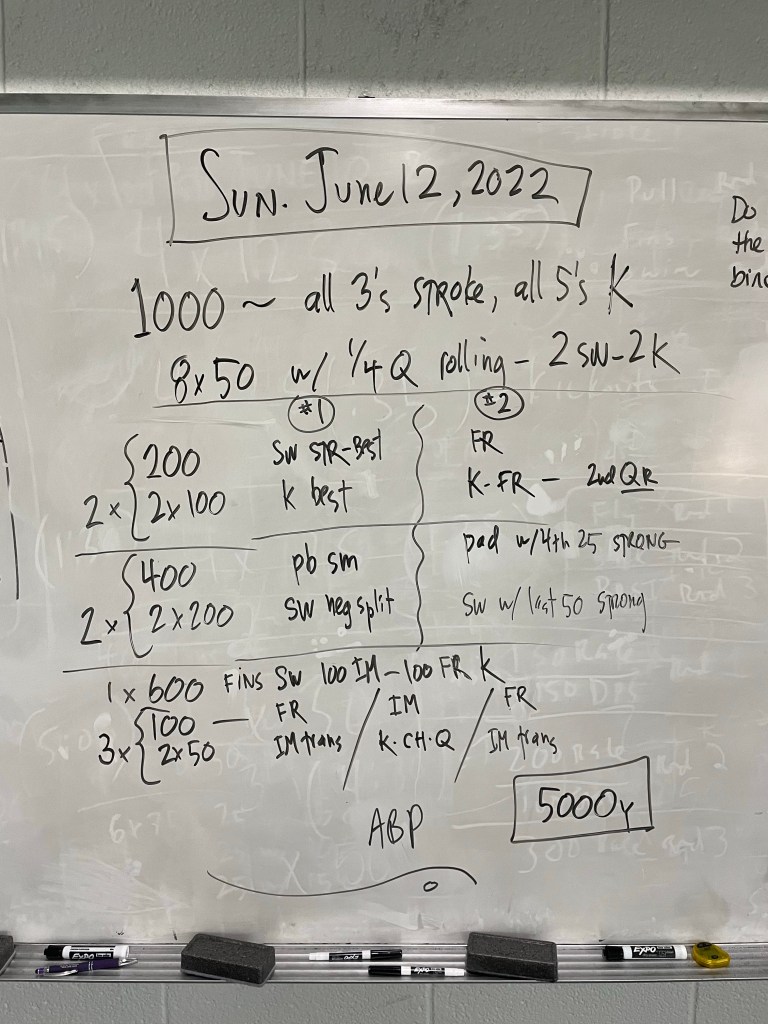 SUN. JUNE 12, 2022
Do
the
1000 ~ all 3's STROKE, all 5's K
8x50 w/ 1/4 Q rolling - 2 SW - 2 K
#1 #2
2 x { 200 SW STR-BEST FR
2x100 K best K-FR - 2nd QR
2 x { 400 pb sm pad w/4th 25 STRONG
2x200 SW neg split SW w/ last 50 strong
1 x 600 FINS SW 100 IM - 100 FR K
3 x { 100 — FR / IM / FR
2x50 IM trans / K·CH·Q / IM trans
5000y
ABP
EXPO
EXPO
EXPO
EXPO